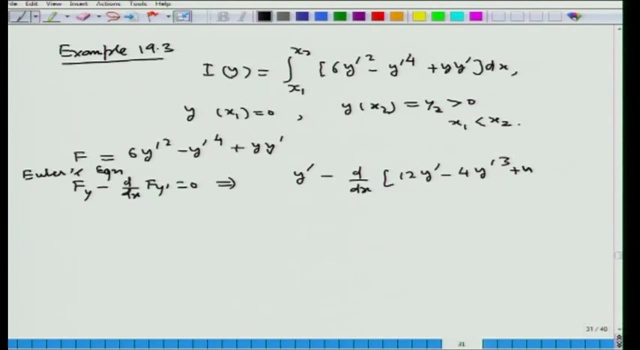 Edit View Insert Actions Tools Help
Example 19.3
I(y) = ∫_{x₁}^{x₂} [6y'² - y'⁴ + yy']dx,
y(x₁)=0, y(x₂) = y₂ > 0
x₁ < x₂.
F = 6y'² - y'⁴ + yy'
Euler's Eqn
F_y - d/dx F_y' = 0 ⇒ y' - d/dx [12y' - 4y'³ + y
31 / 40
31